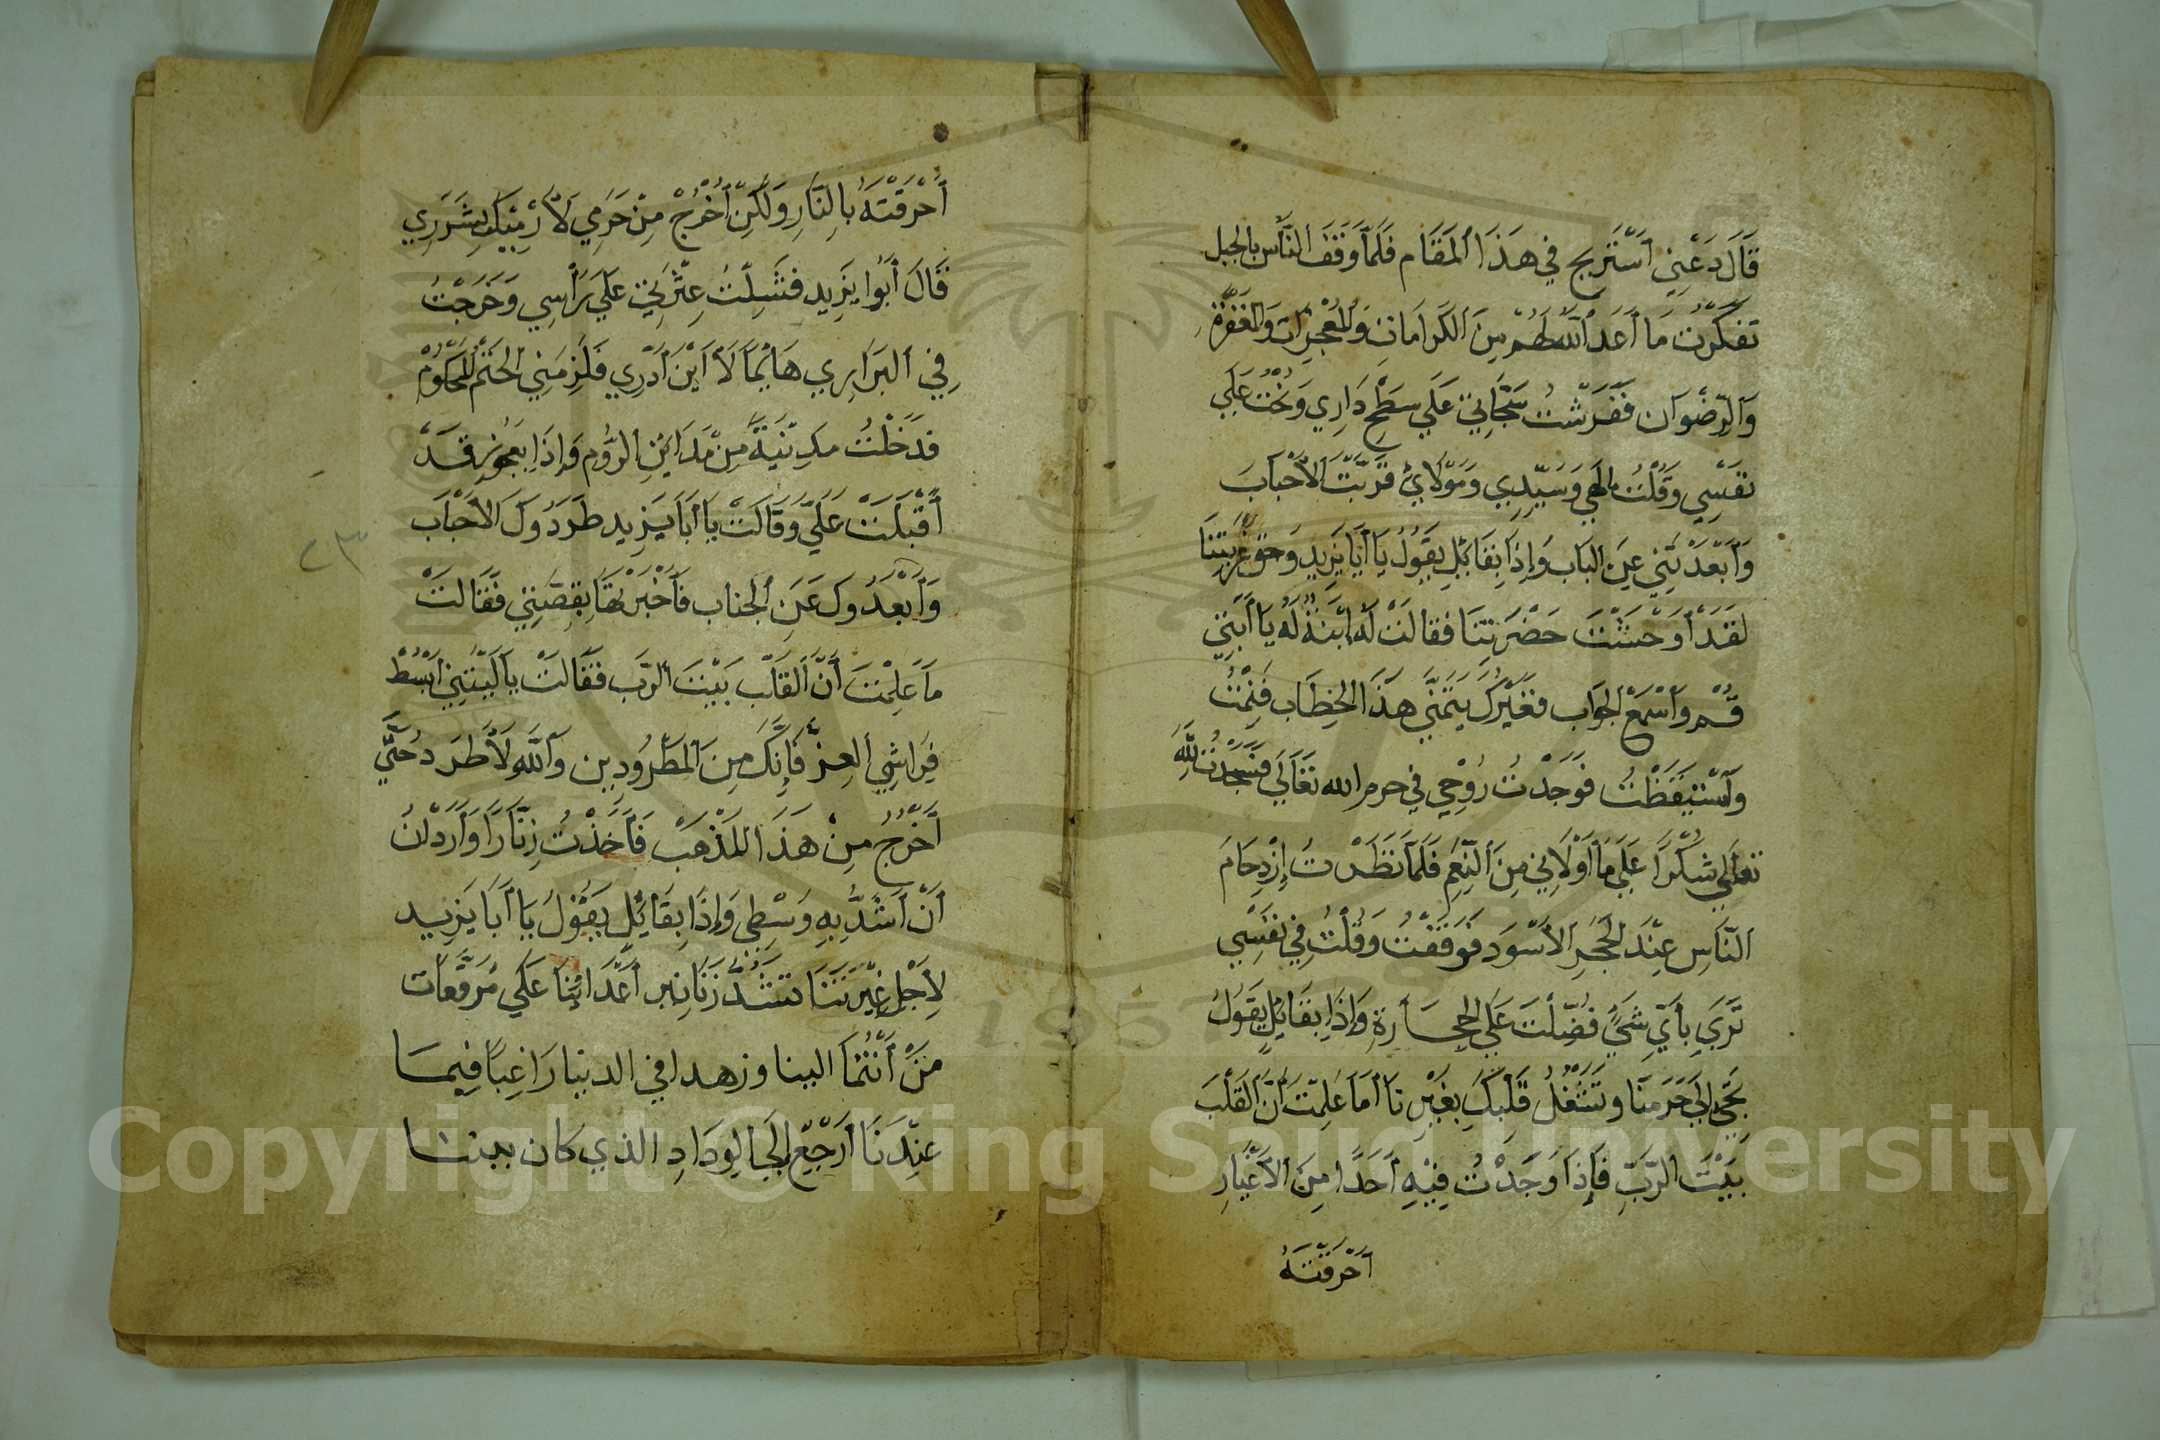 قَالَ دَعْنِي أَسْتَرِيح فِي هَذَا اَلْمَقَام فَلَمَّا وَقَفَ النَّاس بالجبل
تفكَّرْتُ مَا أَعَدَ اَللّٰه لَهُمْ مِنَ اَلكَرامَات وَالمُعْجِزَات وَالمَغْفِرَة
وَاَلرِّضْوَان فَفَرَشْتُ سَجَّادَتي عَلَي سَطْحِ دَارِي وَنُحْتُ عَلَي
نفسِي وَقُلْتُ الهي وَسَيِّدِي وَمَوْلَايَ قَرَّبْتَ الأَحْبَابَ
وَاَبْعَدْتَنِي عَنِ البَاب وَإِذَا بِقَائِلٍ يقُولُ يَا أَبَا يَزِيد وَحَق عزتِنَا
لقَد أَوْحَشْتَ حَضْرَتِنَا فقالَتْ لَه اِبْنَةٌ لَهُ يَا أَبَتِي
قُمْ وَاَسْمَعْ الجَوَاب فَغَيْرُكَ يَتَمَنَّي هَذَا الخِطَاب فَنِمْتُ
وَاَسْتَيْقَظْتُ فَوَجَدْتُ رُوْحِي فِي حرم الله تعَالَي فَسَجَدْتُ لِلّٰهِ
تعَالَي شكْرًا عَلَي مَا أَوْلَانِي مِنَ اَلنِّعَمِ فَلَمَّا نَظَرْتُ إِزْدِحَامَ
النَّاسِ عِنْدَ الحَجَرِ الأَسْوَد فوقَفْتُ وَقُلْتُ فِي نفسِي
تَرَي بِأَيِّ شَيٍّ فُضِّلْتَ عَلَي الحِجَارَةِ وَإِذَا بِقَائِلٍ يَقُولُ
تجَي إِلَي حَرَمِنَا وَتَشْغَلُ قَلْبَكَ بِغَيْرِنَا أَمَا عَلِمْتَ أَنَّ اَلقَلْبَ
بَيْتُ الرَّبِّ فَإِذَا وَجَدْتُ فِيْهِ أَحَدًا مِنَ الأَغْيَارِ
أحْرَقْتَهُ
أَحْرَقْتَهُ بِالنَّارِ وَلَكِنْ أُخْرُجْ مِنْ حَرَمِي لَأَرْمِيَنَّكَ بِشَرَرِي
قَالَ أَبُوا يَزِيد فشَيلْتُ عَلَي رَأسِي وَخَرَجْتُ
فِي اَلبَرَارِي هَائِمًا لَا اَيْنَ أَدْرِي فَلَزِمَنِي الحَتْمُ المَحْكُومْ
فدَخَلْتُ مَدِيْنَةً مِنْ مَدَائِنِ الرُّوم وَإِذَا بِعَجُوزٍ قَدْ
أَقْبَلَتْ عَلَيَّ وَقَالَتْ يَا أَبَا يَزِيد طَرَدُوكَ الأَحْبَاب
وَأَبْعَدُوكَ عَنِ الجناب فَأَخْبَرْتهَا بِقِصَّتِي فَقَالَتْ
مَا عَلِمْتَ أَنَّ اَلقَلْبَ بَيْتَ الرَّب فَقَالَتْ يَا لَيْتَنِي اَبْسُطْ
فِرَاشِي العِز فَإِنَّكَ مِنَ اَلمَطْرُودِين وَاَللَّهِ لَأَطرَدُ حَتَّي
أَخْرُجُ مِنْ هَذَا المَذْهَبْ فَأَخَذْتُ زِنَّارًا وَأَرَدْتُ
أَنْ أَشُدَّ بِهِ وَسْطِي وَإِذَا بِقَائِلٍ يَقُولُ يَا أَبَا يَزِيد
لِأَجْلِ غَيْرَتِنَا تَشُدُّ زَنَانِير أَعْدَائِنَا عَلَي مُرَقَّعَات
مَنْ أَنْتُمَا الينا وزهدا في الدنيا رَاغِبًا فِيمَا
عِنْدَنَا أَرْجِعْ إِلَي الوِدَادِ الذي كان بيننا